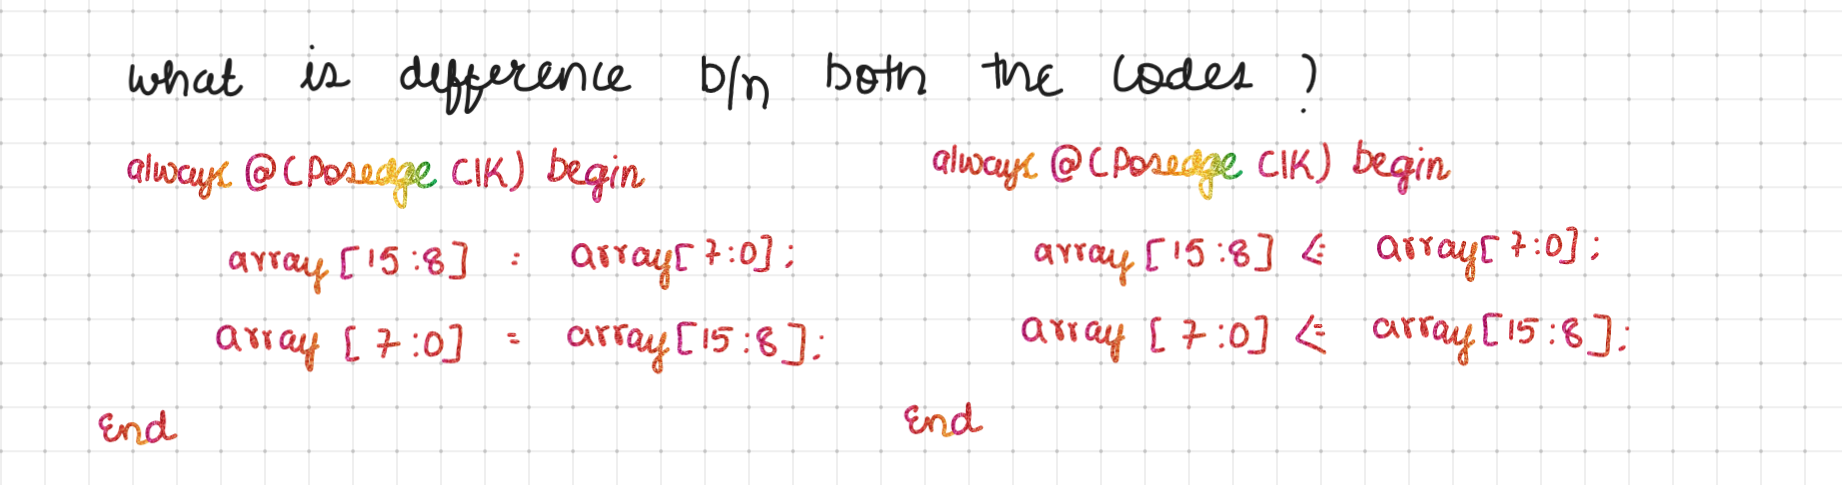 what is difference b/n both the codes ?
always @ (Posedge clk) begin
array [15:8] = array[7:0];
array [7:0] = array[15:8];
End
always @ (Posedge clk) begin
array [15:8] <= array[7:0];
array [7:0] <= array[15:8];
End